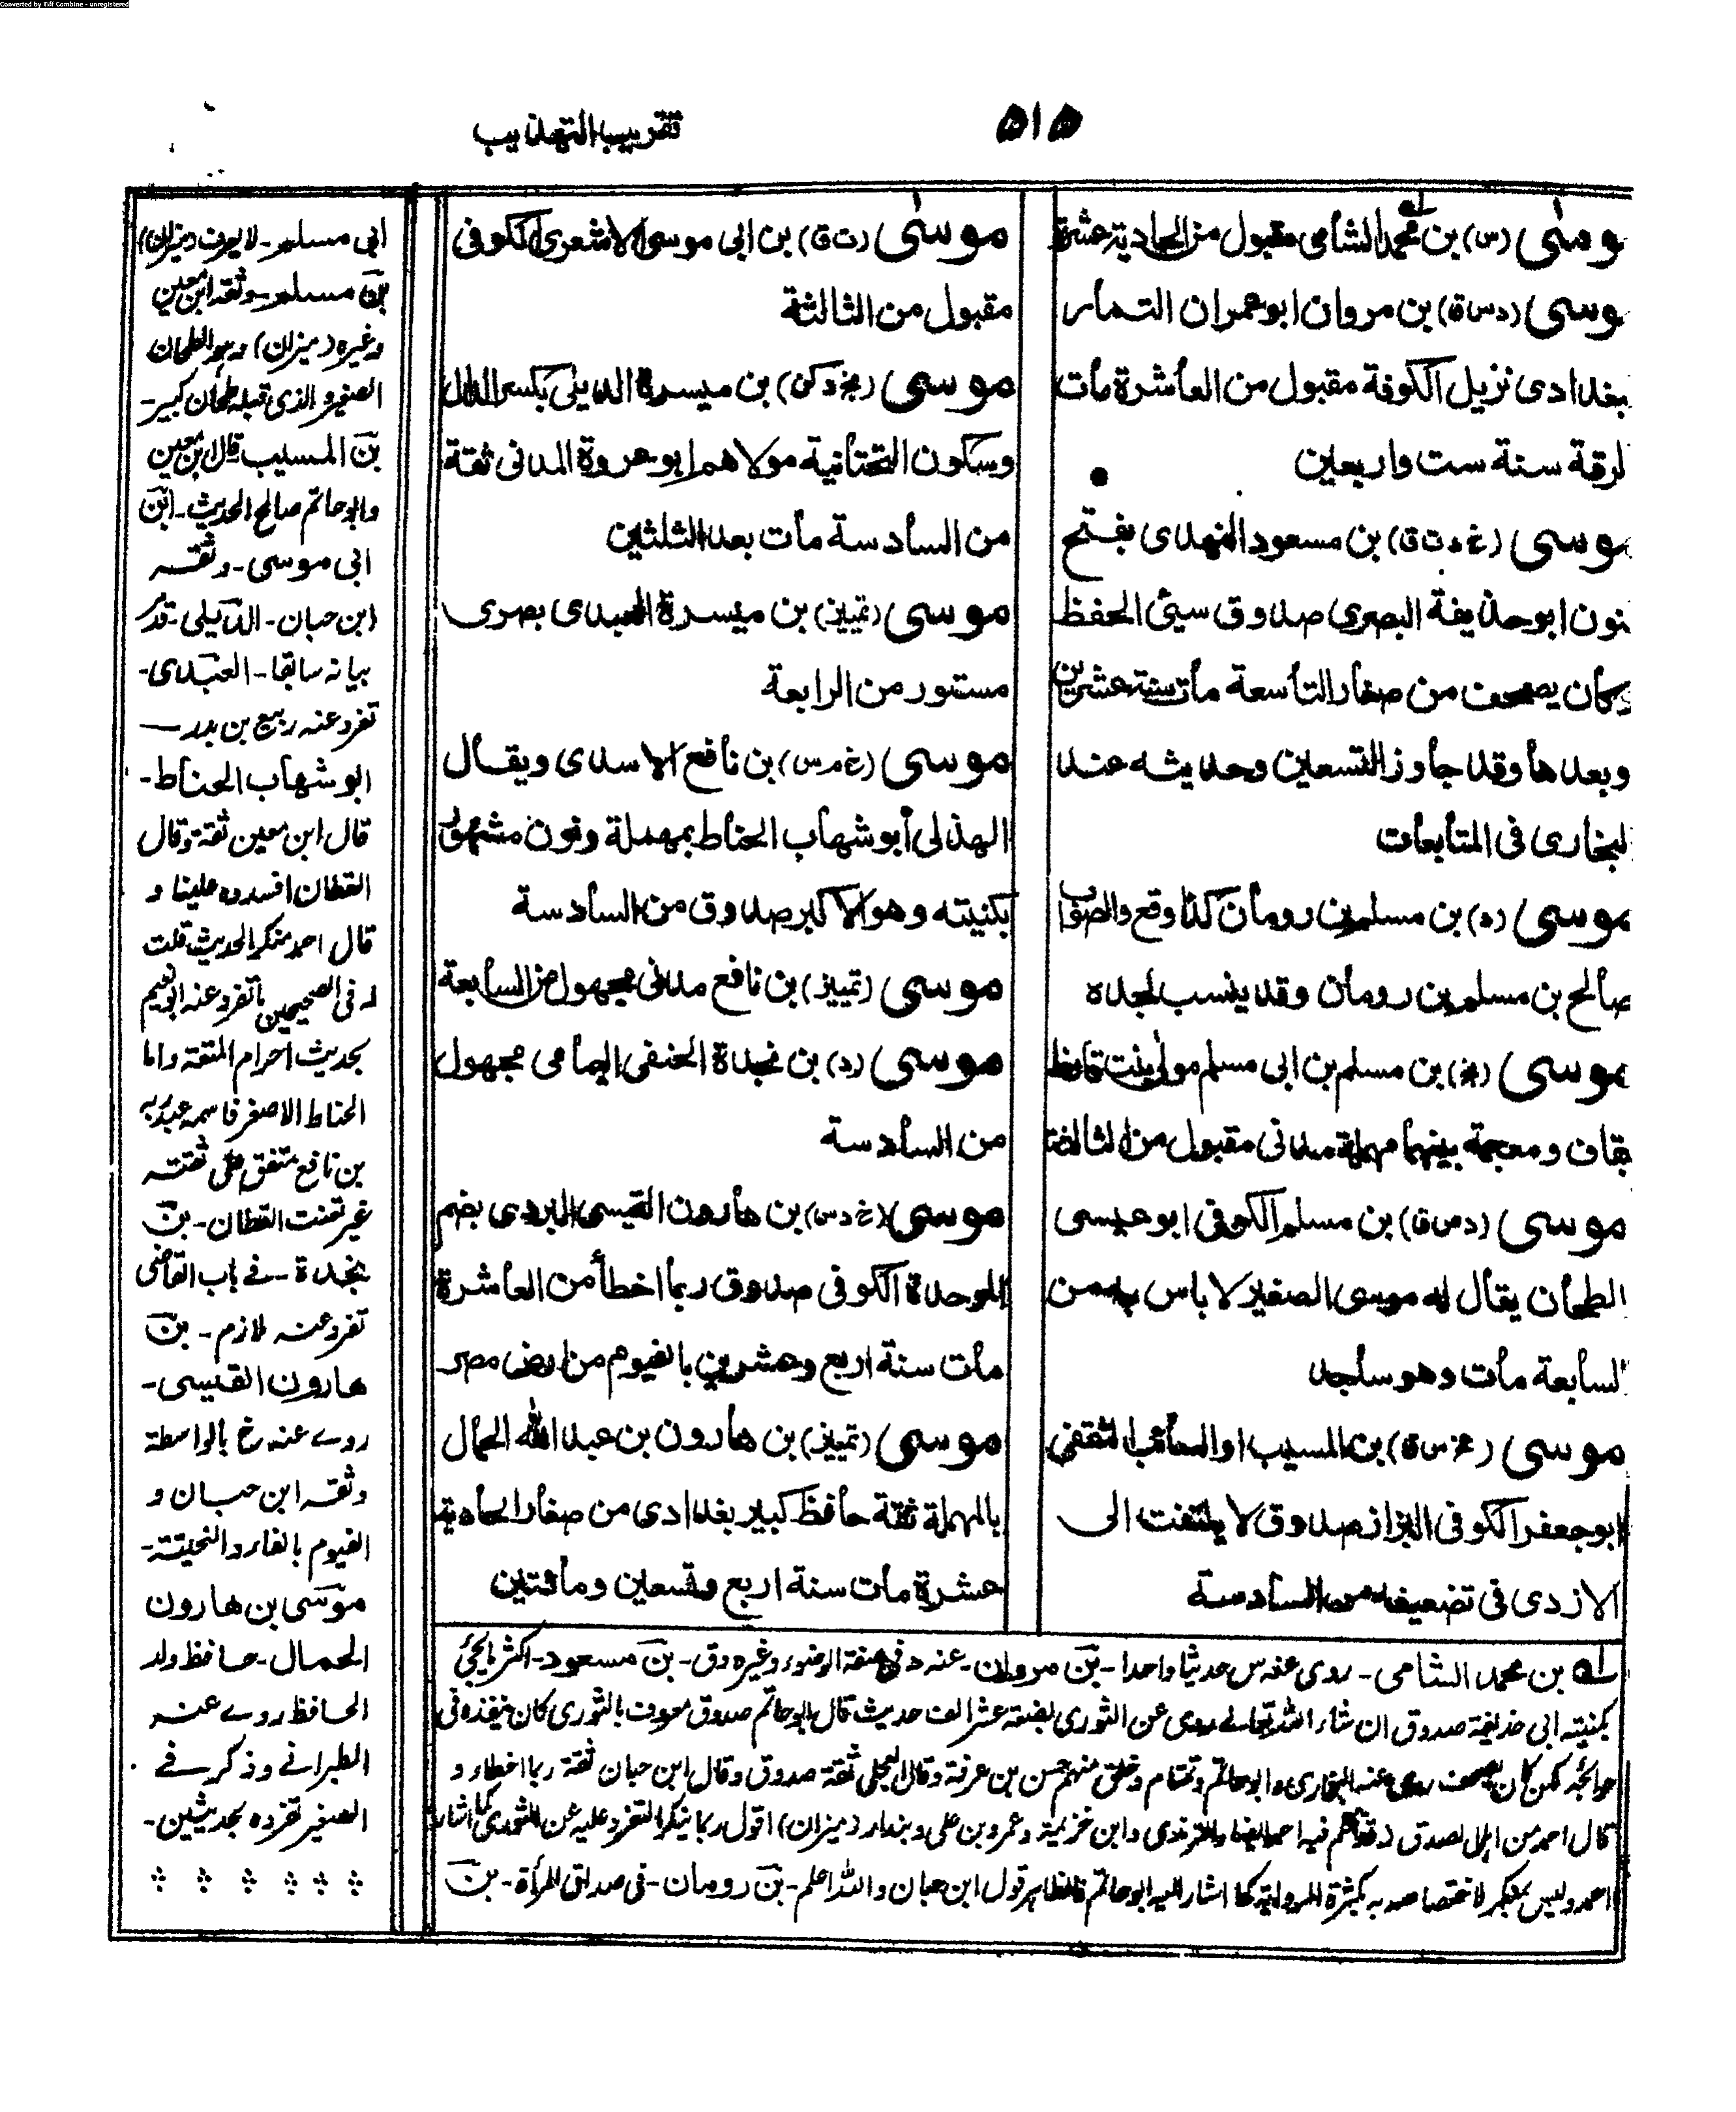 Converted by Tiff Combine - unregistered
تقريب التهذيب
٥١٥
موسى (س) بن محمد الشامي مقبول من الحادية عشرة
موسى (د س ق) بن مروان ابو عمران التمار
بغدادى نزيل الكوفة مقبول من العاشرة مات
لرقة سنة ست واربعين
موسى (خ د ت ق) بن مسعود النهدى بفتح
نون ابو حذيفة البصري صدوق سيئ الحفظ
وكان يصحف من صغار التاسعة مات سنة عشرين
وبعدها وقد جاوز التسعين وحديثه عند
لبخارى فى المتابعات
موسى (ه) بن مسلم بن رومان كذا وقع والصواب
صالح بن مسلم بن رومان وقد ينسب لجده
موسى (بخ) بن مسلم بن ابى مسلم مولى بنت قارظ
بقاف ومعجمة بينهما مهملة مدنى مقبول من الثالثة
موسى (د س ق) بن مسلم الكوفى ابو عيسى
الطحان يقال له موسى الصغير لا باس به من
السابعة مات وهو ساجد
موسى (س ق) بن المسيب او السائب الثقفى
ابو جعفر الكوفى البزاز صدوق لا يلتفت الى
الازدى فى تضعيفه من السادسة
موسى (ت ق) بن ابى موسى الاشعرى الكوفى
مقبول من الثالثة
موسى (بخ د كن) بن ميسرة الديلى بكسر الدال
وسكون التحتانية مولاهم ابو عروة المدنى ثقة
من السادسة مات بعد الثلثين
موسى (تمييز) بن ميسرة العبدى بصرى
مستور من الرابعة
موسى (خ م س) بن نافع الاسدى ويقال
الهذلى أبو شهاب الحناط بمهملة ونون مشهور
بكنيته وهو الاكبر صدوق من السادسة
موسى (تمييز) بن نافع مدنى مجهول من السابعة
موسى (د) بن نجدة الحنفى اليمامى مجهول
من السادسة
موسى (خ د س) بن هارون القيسى البردى بضم
الموحدة الكوفى صدوق ربما اخطأ من العاشرة
مات سنة اربع وعشرين بالفيوم من ارض مصر
موسى (تمييز) بن هارون بن عبد الله الحمال
بالمهملة ثقة حافظ كبير بغدادى من صغار الحادية
عشرة مات سنة اربع وتسعين ومائتين
ابى مسلم - لا يعرف (ميزان)
بن مسلم - وثقه ابن معين
وغيره (ميزان) وهو الطحان
الصغير والذى قبله طحان كبير -
بن المسيب قال ابن معين
وابو حاتم صالح الحديث - ابن
ابى موسى - وثقه
ابن حبان - الديلى - قد مر
بيانه سابقا - العبدى -
تفرد عنه ربيع بن بدر
ابو شهاب الحناط -
قال ابن معين ثقة وقال
القطان افسدوه علينا و
قال احمد منكر الحديث قلت
له فى الصحيحين ما تفرد عنه ابو نعيم
بحديث احرام المتعة واما
الحناط الاصغر فاسمه عبد ربه
بن نافع متفق على ثقته
غير تعنت القطان - بن
نجدة - فے باب القاضى
تفرد عنه ملازم - بن
هارون القيسى -
روے عنه خ بالواسطة
وثقه ابن حبان و
الفيوم بالفاء والتحتية -
موسى بن هارون
الحمال - حافظ ولد
الحافظ روے عنه
الطبرانے وذكر فے
الصغير تفرده بحديثين -
له بن محمد الشامى - روى عنه س حديثا واحدا - بن مروان - عنه د فى صفة الوضوء وغيره وق - بن مسعود - اكثر ما يجئ
بكنيته ابى حذيفة صدوق ان شاء الله تعالے روى عن الثورى بضعة عشر الف حديث قال ابو حاتم صدوق معروف بالثورى كان ينفذه فى
حوائجه لكن كان يصحف روى عنه البخارى و ابو حاتم وتمتام وخلق منهم حسن بن عرفة وقال العجلى ثقة صدوق وقال ابن حبان ثقة ربما اخطاء و
قال احمد من اهل الصدق وتكلم فيه احمد ايضا والترمذى وابن خزيمة وعمرو بن على وبندار (ميزان) اقول ربما ينكر التفرد عليه عن الثورى كما اشار
احمد وليس بمنكر لاختصاصه به بكثرة الرواية كما اشار اليه ابو حاتم فالظاهر قول ابن حبان والله اعلم - بن رومان - فى صداق المرأة - بن